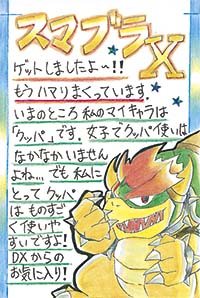 スマブラX
ゲットしましたよ~!!
もうハマりまくっています.
いまのところ 私のマイキャラは
「クッパ」です。女子でクッパ使いは
なかなかいません
よね… でも 私に
とって クッパ
は ものすご
く使いや
すいですよ!
DXからの
お気に入り!